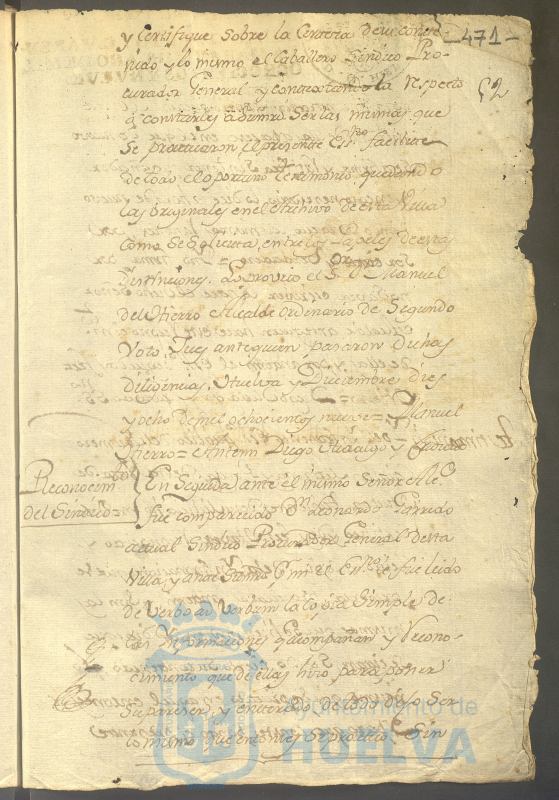 y Certifique Sobre la Certeza de su conte-
nido y lo mismo el Caballero Sindico Pro-
curador General y contextandola Respecto
a constarles Ser las mismas que
Se practicaron el presente Essno facilite
de todo el oportuno testimonio quedando
las originales en el Archivo de esta Villa
como Se entre los Papeles de estas
distinciones. Lo Proveio el S. D. Manuel
del Hierro Alcalde Ordinario de Segundo
Voto, Jues ante quien pasaron dichas
Diligencias, Huelva y Diciembre dies
y ocho de mil ochocientos nueve = Manuel
Hierro = Antemi Diego Hidalgo y
Reconocim
del Sindico =
En Seguida ante el mismo Señor Alc.
fue comparecido Dn Leonardo Garrido
actual Sindico Procurador General de esta
Villa, y a mi el Essno fue leido
de Verbo ad Verbum la Copia Simple de
las Informaciones que acompañan y Recono-
cimiento que de ellas hizo para poner
Su parecer, y enterado de todo dixo Ser
lo mismo que Sin
-471-
52
Ayuntamiento de
HUELVA